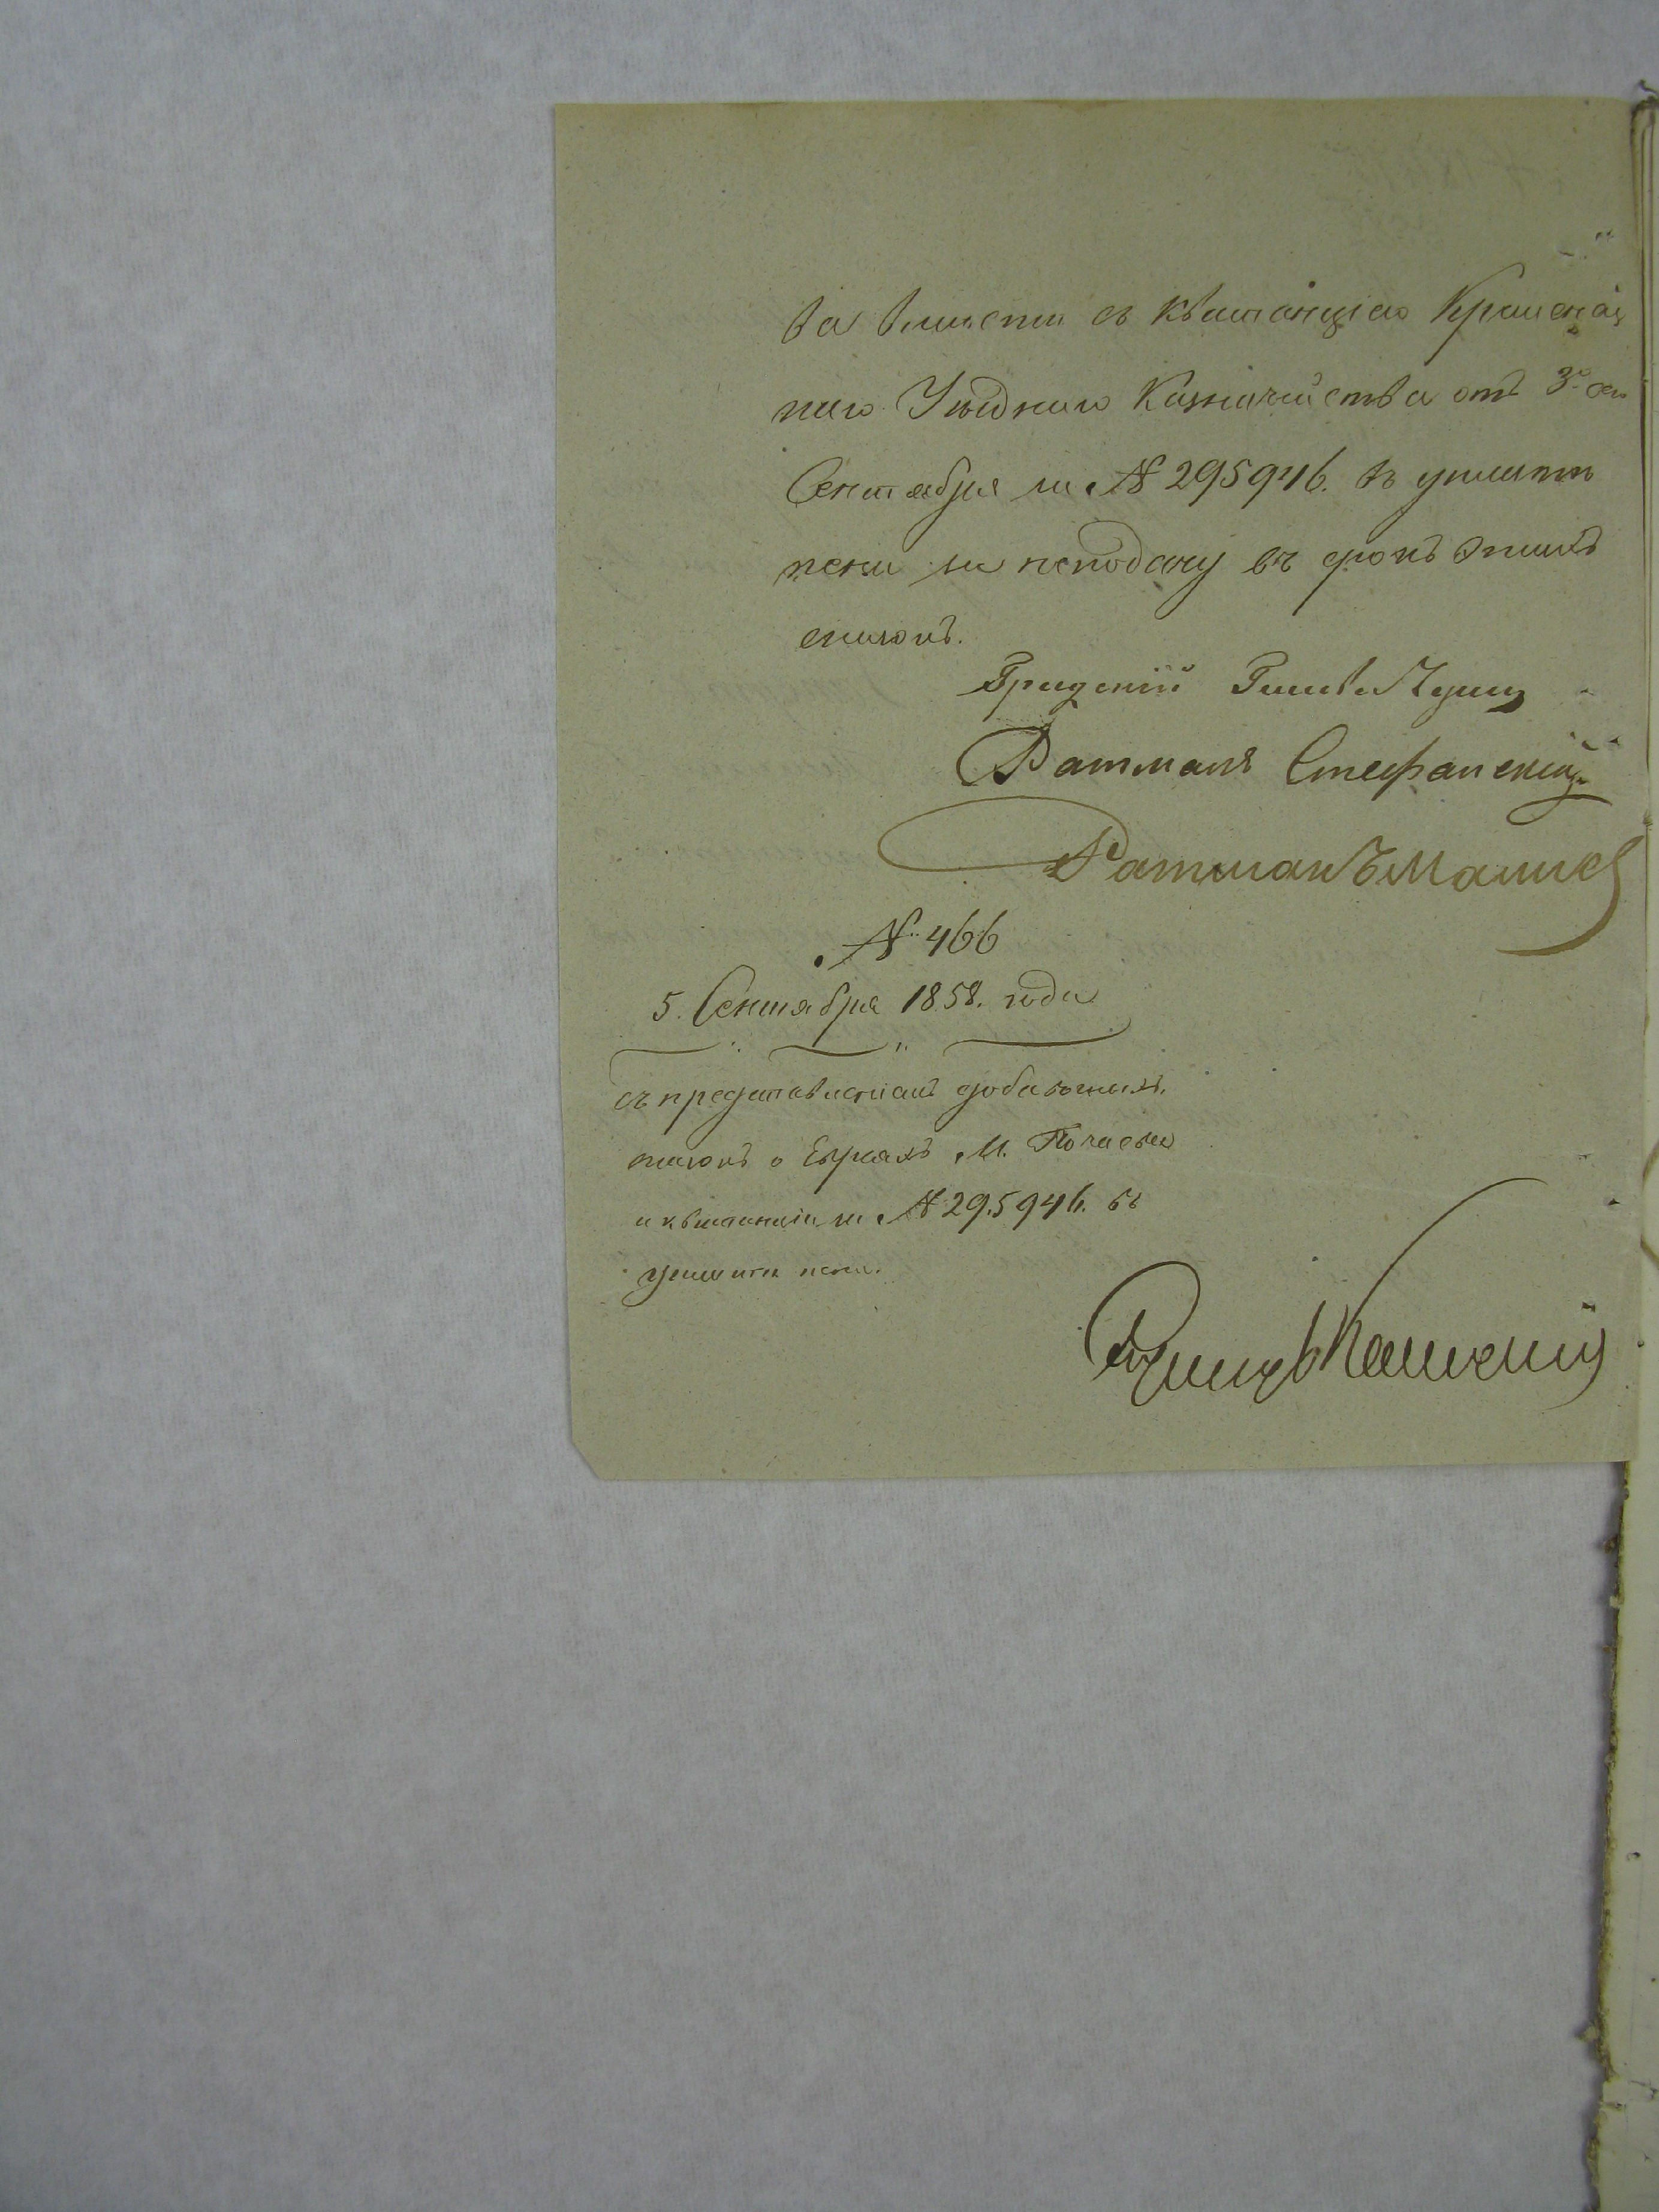 ва вместе съ квитанціею Кременец
каго Уѣзднаго Казначейства отъ 3го
Сентября за № 295946. въ уплатѣ
пени за неподачу въ срокъ этихъ
сказокъ.
Градскій Глава
Ратманъ Стефанскій
Ратманъ
№ 466
5. Сентября 1858. года
съ представленіемъ добавочныхъ
сказокъ о Евреяхъ М. Почаева
и квитанціи за № 295946. въ
уплатѣ пени.